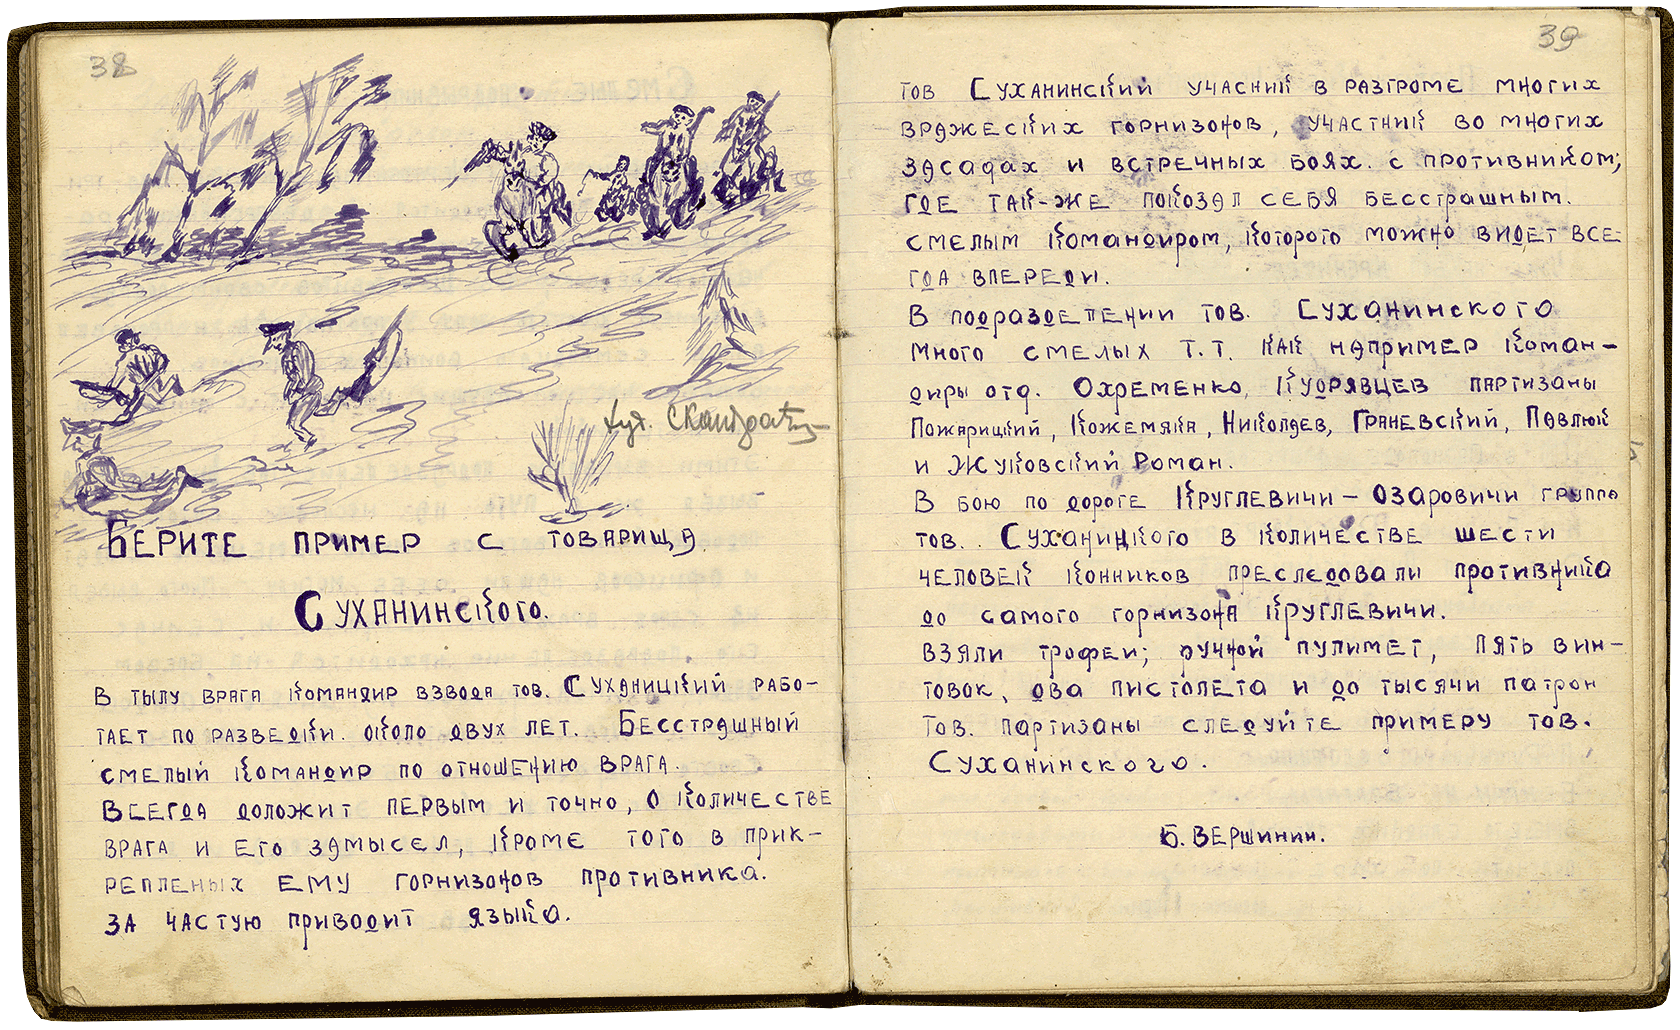 38
худ. СКандрат
БЕРИТЕ ПРИМЕР С ТОВАРИЩА
СУХАНИНСКОГО.
В ТЫЛУ ВРАГА КОМАНДИР ВЗВОДА ТОВ. СУХАНИЦКИЙ РАБО-
ТАЕТ ПО РАЗВЕДКИ. ОКОЛО ДВУХ ЛЕТ. БЕССТРАШНЫЙ
СМЕЛЫЙ КОМАНДИР ПО ОТНОШЕНИЮ ВРАГА.
ВСЕГДА ДОЛОЖИТ ПЕРВЫМ И ТОЧНО, О КОЛИЧЕСТВЕ
ВРАГА И ЕГО ЗАМЫСЕЛ, КРОМЕ ТОГО В ПРИК-
РЕПЛЕНЫХ ЕМУ ГОРНИЗОНОВ ПРОТИВНИКА.
ЗА ЧАСТУЮ ПРИВОДИТ ЯЗЫКА.
39
ТОВ СУХАНИНСКИЙ УЧАСНИК В РАЗГРОМЕ МНОГИХ
ВРАЖЕСКИХ ГОРНИЗОНОВ, УЧАСТНИК ВО МНОГИХ
ЗАСАДАХ И ВСТРЕЧНЫХ БОЯХ. С ПРОТИВНИКОМ;
ГДЕ ТАК-ЖЕ ПОКОЗАЛ СЕБЯ БЕССТРАШНЫМ.
СМЕЛЫМ КОМАНДИРОМ, КОТОРОГО МОЖНО ВИДЕТ ВСЕ-
ГДА ВПЕРЕДИ.
В ПОДРАЗДЕЛЕНИИ ТОВ. СУХАНИНСКОГО
МНОГО СМЕЛЫХ Т.Т. КАК НАПРИМЕР КОМАН-
ДИРЫ ОТД. ОХРЕМЕНКО, КУДРЯВЦЕВ ПАРТИЗАНЫ
ПОЖАРИЦКИЙ, КОЖЕМЯКА, НИКОЛАЕВ, ГРАНЕВСКИЙ, ПАВЛЮК
И ЖУКОВСКИЙ РОМАН.
В БОЮ ПО ДОРОГЕ КРУГЛЕВИЧИ – ОЗАРОВИЧИ ГРУППА
ТОВ. СУХАНИЦКОГО В КОЛИЧЕСТВЕ ШЕСТИ
ЧЕЛОВЕК КОННИКОВ ПРЕСЛЕДОВАЛИ ПРОТИВНИКА
ДО САМОГО ГОРНИЗОНА КРУГЛЕВИЧИ.
ВЗЯЛИ ТРОФЕИ; РУЧНОЙ ПУЛИМЕТ, ПЯТЬ ВИН-
ТОВОК, ДВА ПИСТОЛЕТА И ДО ТЫСЯЧИ ПАТРОН
ТОВ. ПАРТИЗАНЫ СЛЕДУЙТЕ ПРИМЕРУ ТОВ.
СУХАНИНСКОГО.
Б. ВЕРШИНИН.